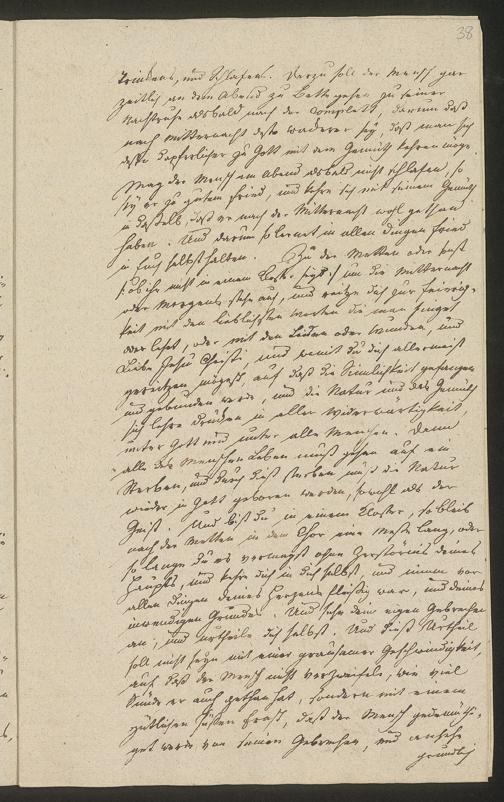 38
Trinkens, und Schlafens. Darzu soll der Mensch gar
zeitlich an dem Abend zu Bette gehen zu seiner
Nachtruhe alsbald nach der Complett, darum daß
nach Mitternacht desto wackerer sey, daß man sich
desto dapferlicher zu Gott mit dem Gemüth kehren möge.
Mag der Mensch am Abend alsbald nicht schlafen, so
sey er zu gutem Fried, und kehre sich mit seinem Gemüth
in daßelb, das er nach der Mitternacht wohl gethan
haben. Und darum so lernet in allen Dingen Fried
in Euch selbst halten. Zu der Metten oder sonst
ob ihr nicht in einem Closter seyd um die Mitternacht
oder Morgens stehe auf, und reitze dich zur Inbrünstig-
keit mit den lieblichsten Worten die man singet
oder liest, oder mit dem Leiden oder Wunden, und
Liebe Jesu Christi und womit du dich allermeist
gereitzen mögest, auf daß die Sinnlichkeit gefangen
und gebunden werde, und die Natur und das Gemüth
sich lehre drücken in aller Widerwärtigkeit,
unter Gott und unter alle Menschen. Denn
alle des Menschen Leben muß gehen auf ein
Sterben, und durch dieß sterben muß die Natur
wieder in Gott geboren werden, sowohl als der
Geist. Und bist du in einem Closter, so bleib
nach der Metten in dem Chor eine Messe lang, oder
so lange du es vermagst ohne Zerstörniß deines
Haupts, und kehre dich in dich selbst, und nimm vor
allen Dingen deines Herzens fleißig war, und deines
inwendigen Grundes. Und siehe dein eigen Gebrechen
an, und urtheile dich selbst. Und dieß Urtheil
soll nicht seyn mit einer grausamen Geschwindigkeit,
auf daß der Mensch nicht verzweifele, wie viel
Sünde er auch gethan hat, sondern mit einem
gütlichen süßen Ernst, daß der Mensch gedemüthi-
get werde von seinen Gebrechen, und ansehe
gründlich